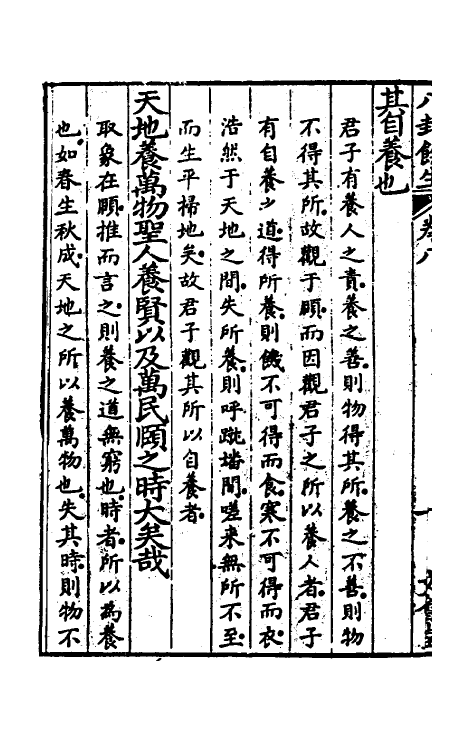 其自養也
君子有養人之責養之善則物得其所養之不善則物
不得其所故觀于頤而因觀君子之所以養人者君子
有自養之道得所養則饑不可得而食寒不可得而衣
浩然于天地之間失所養則呼蹴墦間嗟來無所不至
而生平掃地矣故君子觀其所以自養者
天地養萬物聖人養賢以及萬民頤之時大矣哉
取象在頤推而言之則養之道無窮也時者所以為養
也如春生秋成天地之所以養萬物也失其時則物不